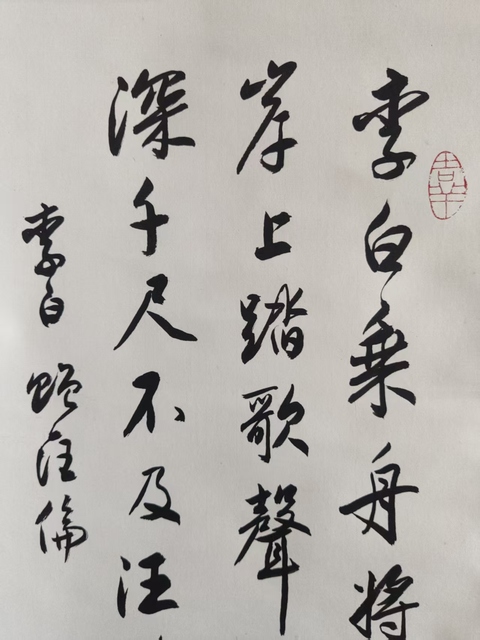 李白乗舟将
岸上踏歌聲
深千尺不及汪
李白 贈汪倫